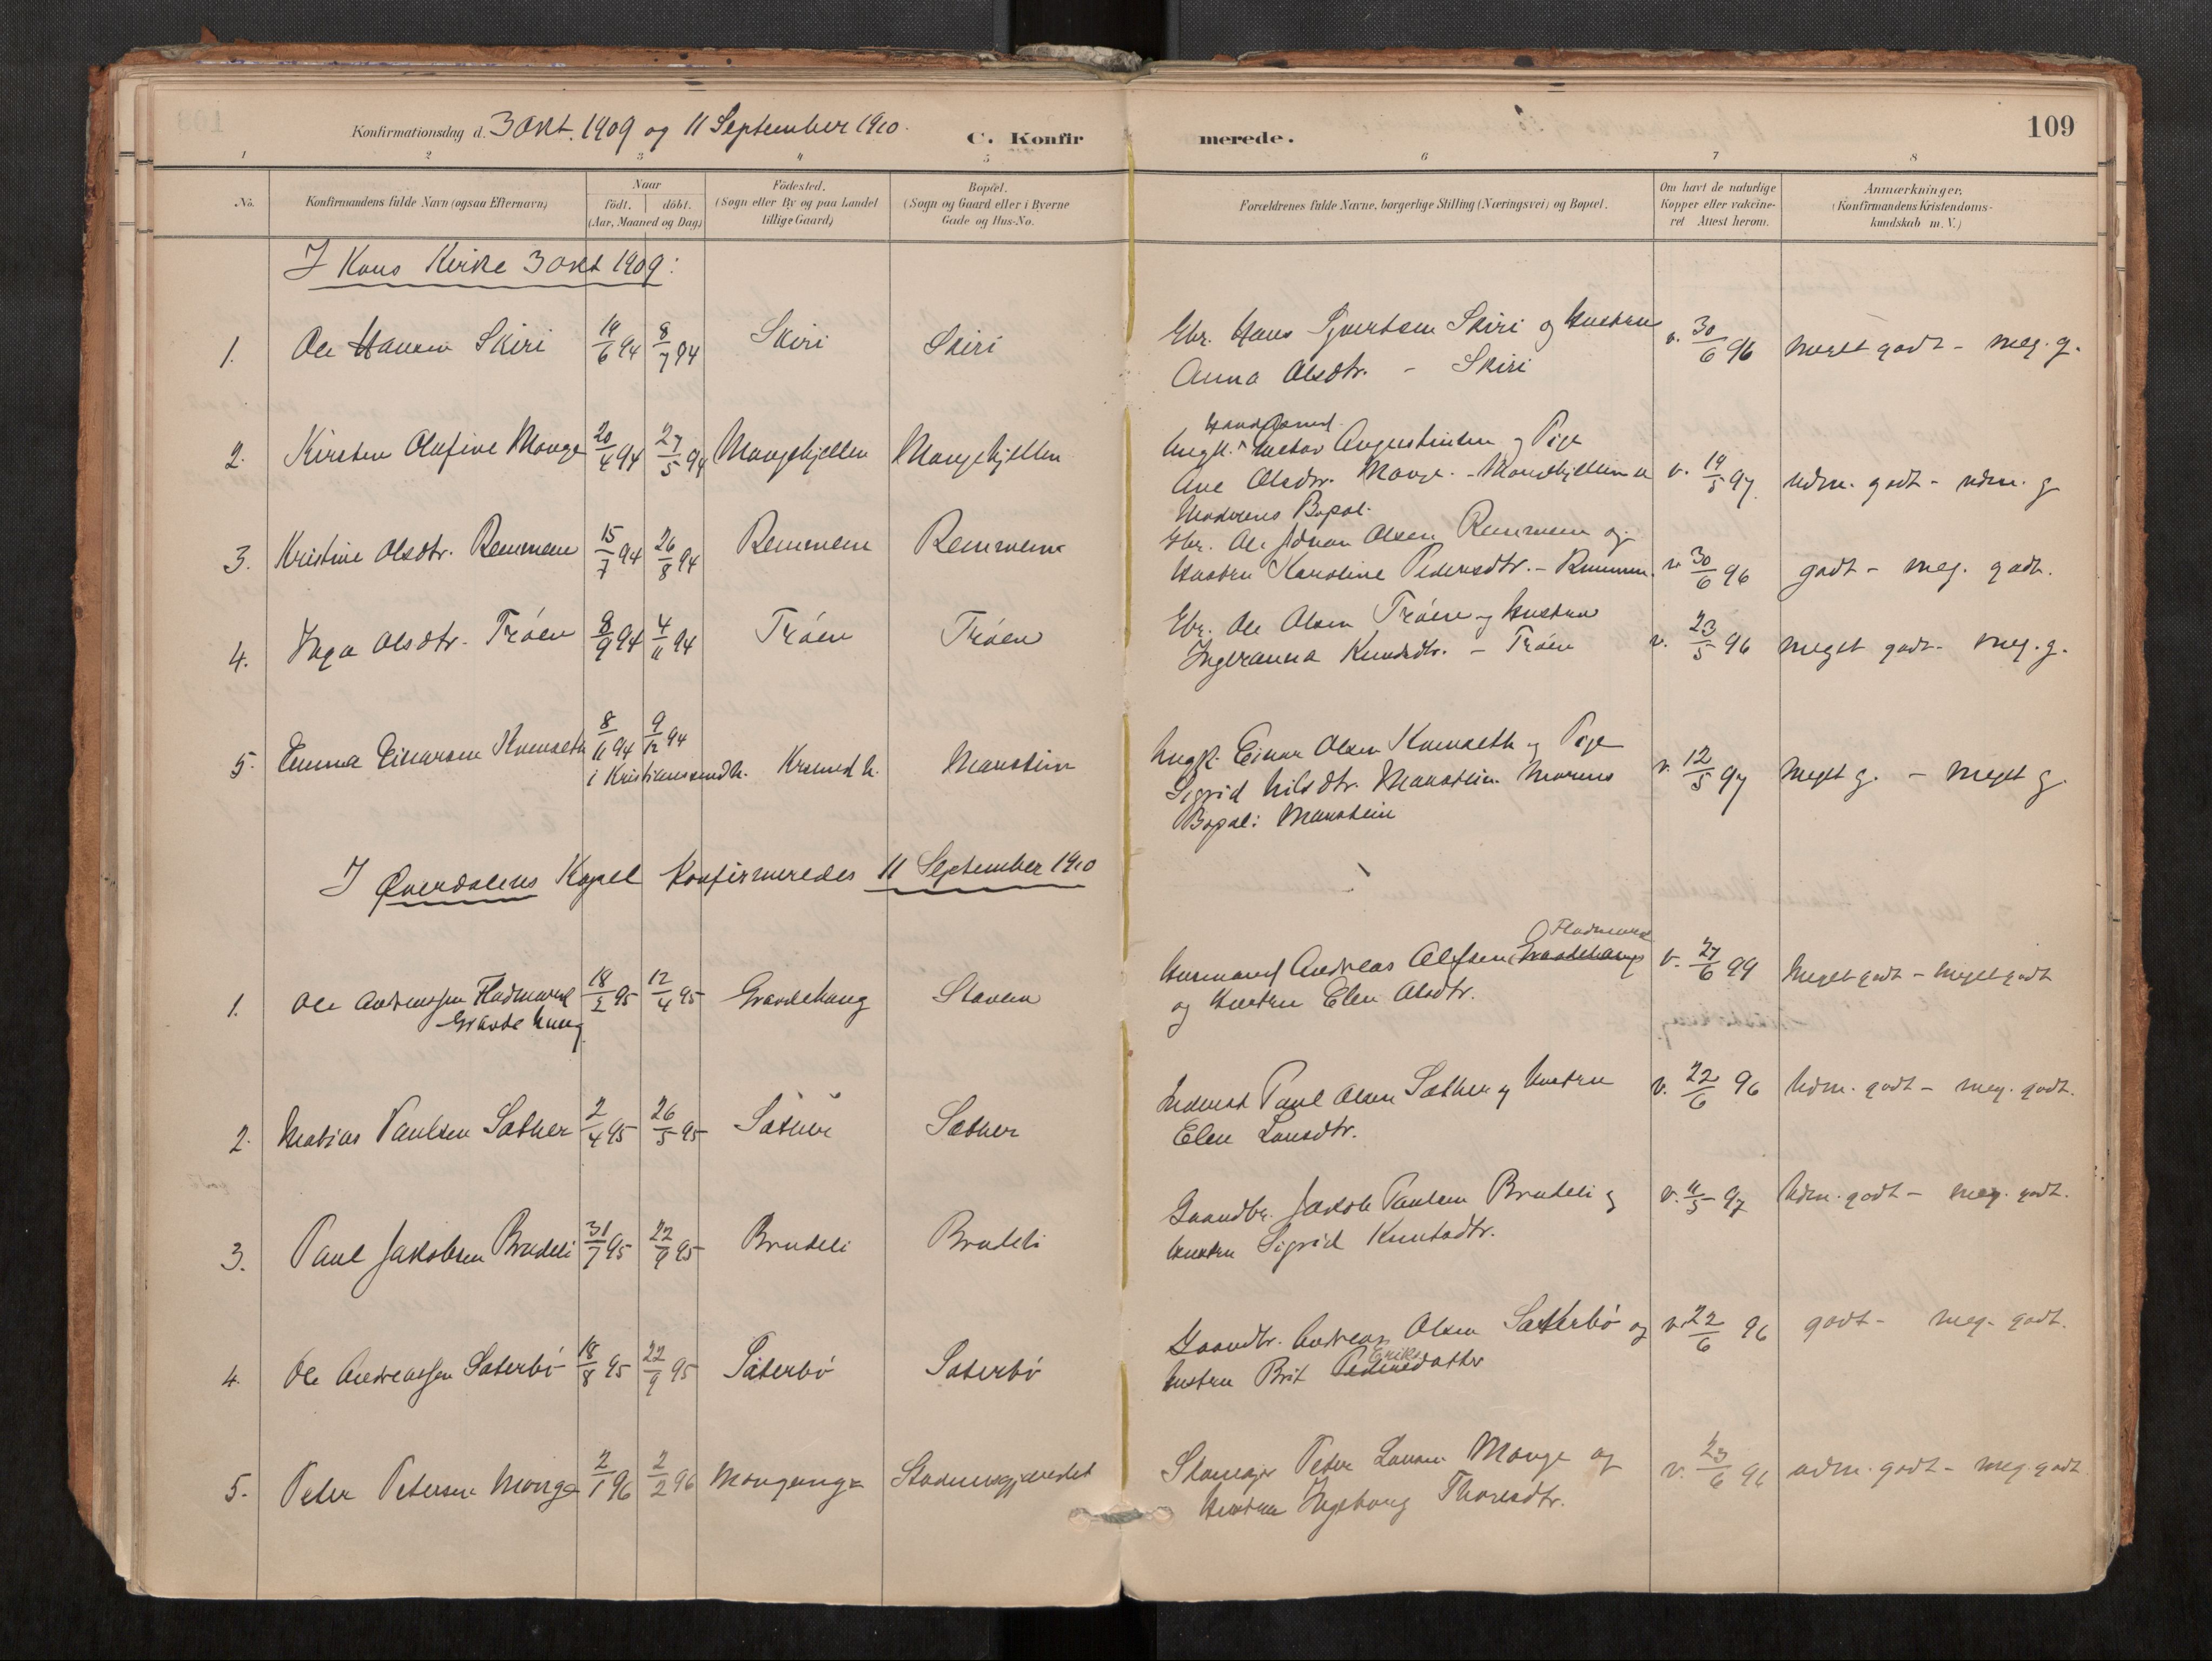 109
Konfirmationsdag d. 3 Okt. 1909 og 11 September 1910.
C. Konfirmerede.
1 2 3 4 5 6 7 8
No.
Konfirmandens fulde Navn (ogsaa Efternavn)
Naar
født. døbt.
(Aar, Maaned og Dag)
Födested.
(Sogn eller By og paa Landet
tillige Gaard)
Bopæl.
(Sogn og Gaard eller i Byerne
Gade og Hus-No.
Forældrenes fulde Navne, borgerlige Stilling (Næringsvei) og Bopæl.
Om havt de naturlige
Kopper eller vakcine-
ret Attest herom.
Anmærkninger.
(Konfirmandens Kristendoms-
kundskab m. V.)
I Kors Kirke 3 Okt 1909:
1. Ole Hansen Skiri 14/6 94 8/7 94 Skiri Skiri
Gbr. Hans Sjurtsen Skiri og Hustru
Anna Olsdtr. - Skiri
v. 30/6 96 meget godt - meg. g.
2. Kirsten Olufine Monge 20/4 94 27/5 94 Mongehjellen Mongehjellen
Ungk. Gustav Augustinsen og Pige
Ane Olsdtr. Monge.
Moderens Bopæl.
v. 14/5 97 udm. godt - udm. g
3. Kristine Olsdtr. Remmem 15/7 94 26/8 94 Remmem Remmem
Gbr. Ole Johan Olsen Remmem og
Hustru Karoline Pedersdtr. - Remmem.
v. 30/6 96 godt - meg. godt.
4. Inga Olsdtr. Trøen 8/9 94 4/11 94 Trøen Trøen
Gbr. Ole Olsen Trøen og Hustru
Ingeranna Knudsdtr. - Trøen
v. 23/5 96 meget godt - meg. g.
5. Emma Einarsen Kvenseth 8/11 94 9/12 94
i Kristianssund h. Krsund h. Marstein
Ungk. Einar Olsen Kvenseth og Pige
Sigrid Nilsdtr. Marstein Morens
Bopæl: Marstein
v. 12/5 97 Meget g. - meget g.
I Øverdalens Kapel konfirmeredes 11 September 1910
1. Ole Andreassen Fladmark 18/2 95 12/4 95 Gravdehaug Staven
Gravdehaug
Fladmark
Husmand Andreas Olsen Gravdehaug
og Hustru Elen Olsdtr.
v. 27/6 99 Meget godt - meget godt
2. Matias Paulsen Sæther 2/4 95 26/5 95 Sæther Sæther
Inderst Paul Olsen Sæther og Hustru
Elen Larsdtr.
v. 22/6 96 Udm. godt - meg. godt.
3. Paul Jakobsen Brudeli 31/7 95 22/9 95 Brudeli Brudeli
Gaardbr. Jakob Paulsen Brudeli og
Hustru Sigrid Knutsdtr.
v. 11/5 97 Udm. godt - meg. godt.
4. Ole Andreassen Sæterbø 18/8 95 22/9 95 Sæterbø Sæterbø
Gaardbr. Andreas Olsen Sæterbø og
Eriks
Hustru Brit Pedersdatter
v. 22/6 96 godt - meg. godt.
5. Peter Petersen Monge 2/1 96 2/2 96 Mongeunge
Skomager Peter Larsen Monge og
Hustru Ingeborg Thoresdtr.
v. 23/6 96 udm. godt - meg. godt.